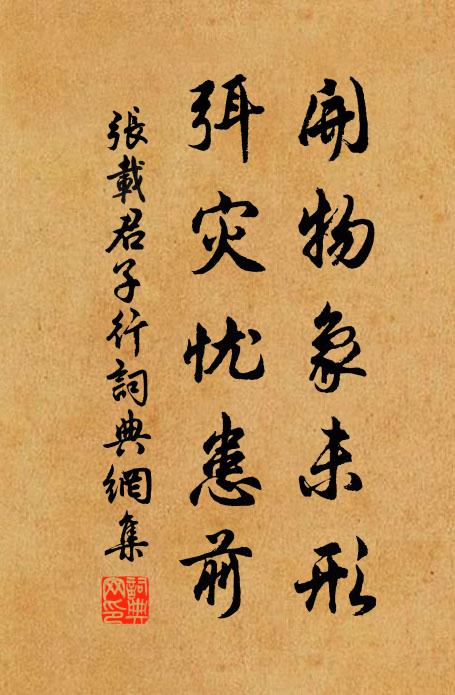 開物象未形
弭灾忧患前
張載君子行詞典網集
詞典
网印